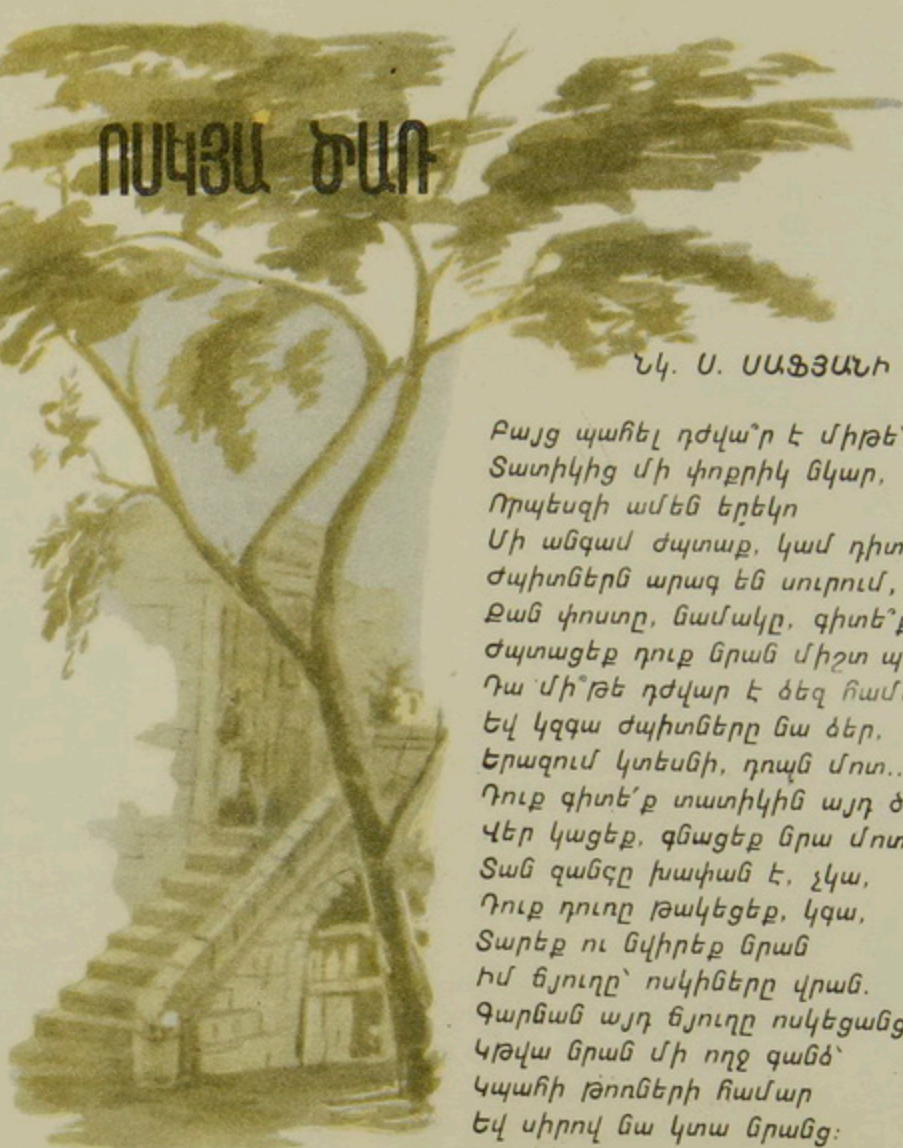 ՈՍԿՅԱ ԾԱՌ
Նկ. Ս. ՍԱՖՅԱՆԻ
Բայց պահել դժվա՞ր է միթե՝
Տատիկից մի փոքրիկ նկար,
Որպեսզի ամեն երեկո
Մի անգամ ժպտաք, կամ
Ժպիտներն արագ են սուրում,
Քան փոստը, նամակը,
Ժպտացեք դուք նրան միշտ
Դա մի՞թե դժվար է ձեզ
Եվ կզգա ժպիտները նա ձեր,
Երազում կտեսնի, դոպն մոտ..
Դուք գիտե՛ք տատիկին այդ
Վեր կացեք, գնացեք նրա
Տան զանգը խափան է, չկա,
Դուք դուռը թակեցեք, կգա,
Տարեք ու նվիրեք նրան
Իմ ճյուղը՝ ոսկիները վրան.
Գարնան այդ ճյուղը
Կթվա նրան մի ողջ գանձ՝
Կպահի թոռների համար
Եվ սիրով նա կտա նրանց: